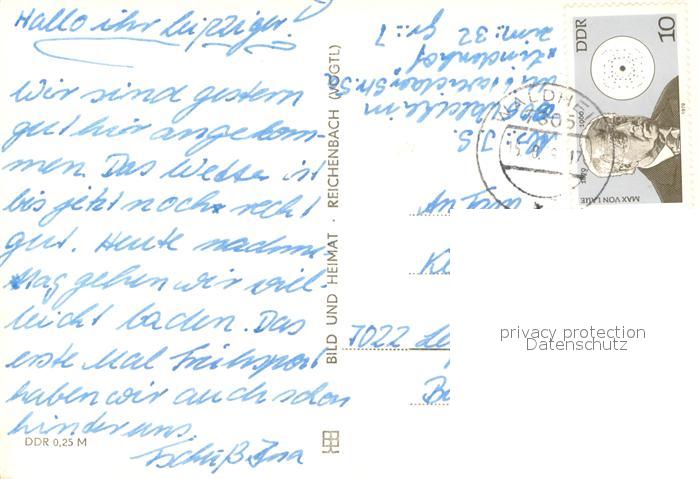 Hallo ihr Leipziger!
Wir sind gestern
gut hier angekom-
men. Das Wetter ist
bis jetzt noch recht
gut. Heute nachmi-
ttag gehen wir viel-
leicht baden. Das
erste Mal Frühsport
haben wir auch schon
hinter uns.
Tschüß Ina
DDR 0,25 M
BILD UND HEIMAT · REICHENBACH (VOGTL)
Waldheim
"Lindenhof"
Zim.: 32 Gr.: 7
7022 Le
DDR
10
MAX VON LAUE
1879
1979
WALDHEIM
privacy protection
Datenschutz